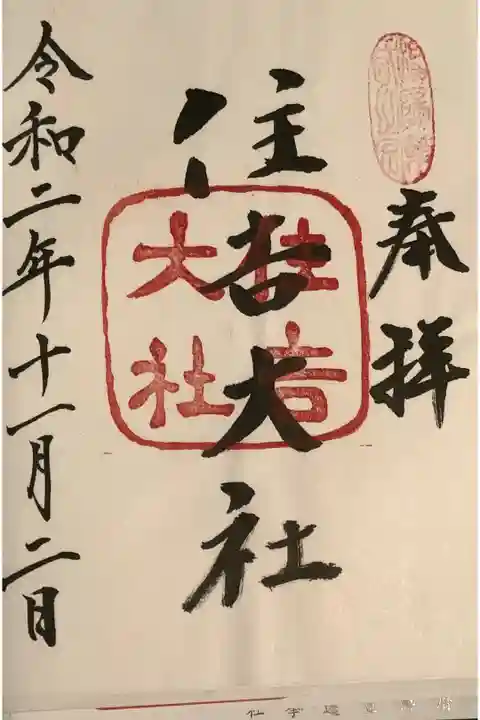 奉拝
住吉大社
住吉
大社
令和二年十一月二日